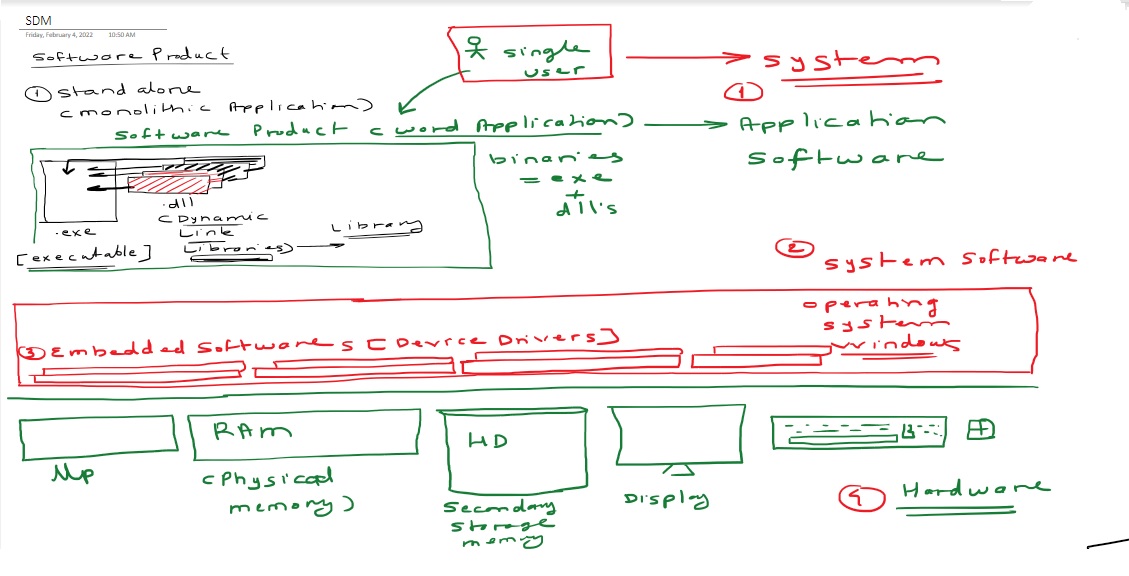 SDM
Friday, February 4, 2022 10:50 AM
Software Product
① stand alone
(monolithic Application)
single
user
system
①
Software Product (word Application)
Application
Software
binaries
= exe
+
dll's
.dll
(Dynamic
Link
Libraries)
Library
.exe
[executable]
② system software
operating
system
windows
③ Embedded Softwares [Device Drivers]
Mp
RAM
(Physical
memory)
HD
Secondary
storage
memory
Display
④ Hardware